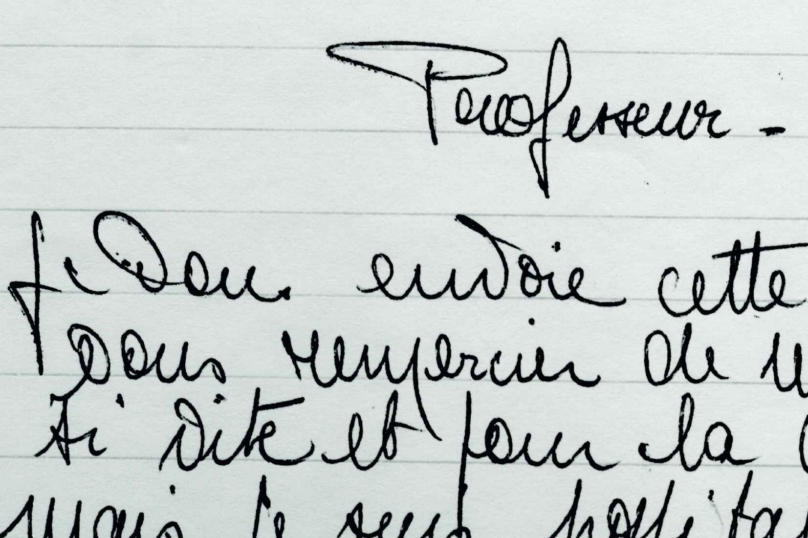 Professeur -
Je vous envoie cette
vous remercier de
si vite et pour la
mais je suis